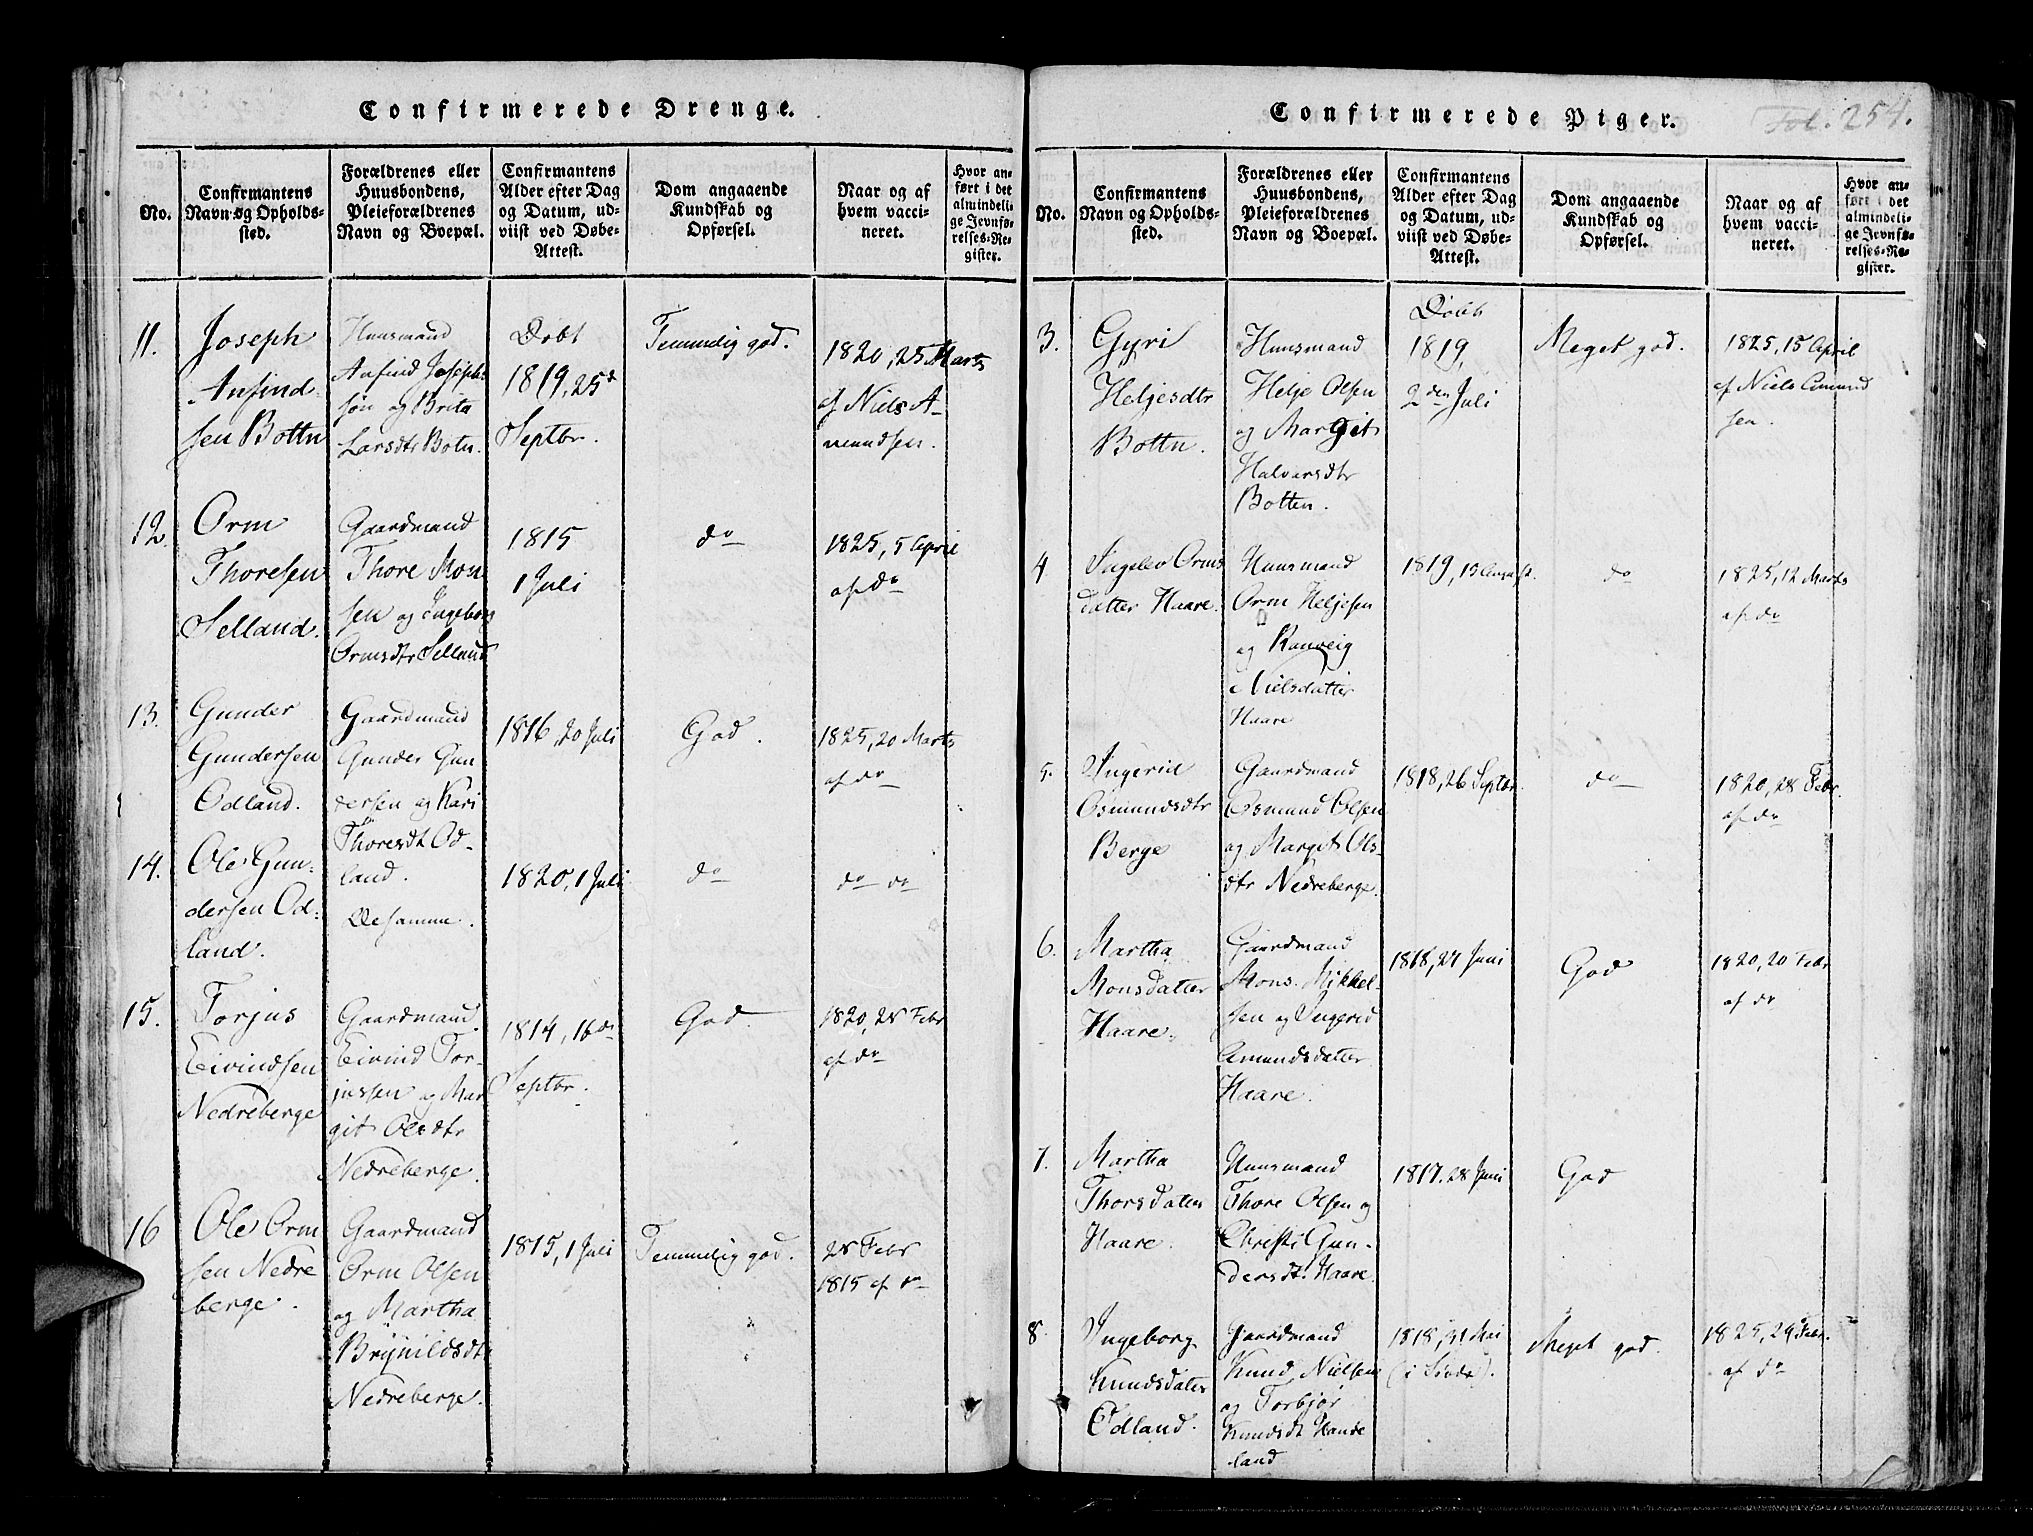 Confirmerede Drenge.
No.
Confirmantens
Navn og Opholds-
sted.
Forældrenes eller
Huusbondens,
Pleieforældrenes
Navn og Boepæl.
Confirmantens
Alder efter Dag
og Datum, ud-
viist ved Døbe-
Attest.
Dom angaaende
Kundskab og
Opførsel.
Naar og af
hvem vacci-
neret.
Hvor an-
ført i det
almindeli-
ge Jevnfø-
relses-Re-
gister.
11.
Joseph
Anfind-
sen Bottn
Huusmand
Anfind Joseph-
søn og Brita
Larsdtr Botn.
Døbt
1819, 25d
Septbr.
Temmelig god.
1820, 25 Marts
af Niels A-
mundsen.
12.
Orm
Thoresen
Selland.
Gaardmand
Thore Mon
sen og Ingeborg
Ormsdtr Selland
1815
1 Juli
do
1825, 5 April
af do
13.
Gunder
Gundersen
Odland.
Gaardmand
Gunder Gun
dersen og Kari
Thoresdt Od-
land.
1816, 20 Juli
God.
1825, 20 Marts
af do
14.
Ole Gun-
dersen Od-
land.
De samme.
1820, 1 Juli
do
do do
15.
Torjus
Eivindsen
Nedreberge
Gaardmand
Eivind Tor-
jussen og Mar
git Olsdtr
Nedreberge.
1814, 16de
Septbr.
God.
1820, 28 Febr
af do
16
Ole Orm
sen Nedre
berge.
Gaardmand
Orm Olsen
og Martha
Brynildsdt
Nedreberge.
1815, 1 Juli
Temmelig god.
28 Febr
1815 af do
Confirmerede Piger.
Fol. 254.
No.
Confirmantens
Navn og Opholds-
sted.
Forældrenes eller
Huusbondens,
Pleieforældrenes
Navn og Boepæl.
Confirmantens
Alder efter Dag
og Datum, ud-
viist ved Døbe-
Attest.
Dom angaaende
Kundskab og
Opførsel.
Naar og af
hvem vacci-
neret.
Hvor an-
ført i det
almindeli-
ge Jevnfø-
relses-Re-
gister.
3.
Gyri
Heljesdtr
Bottn.
Huusmand
Helje Olsen
og Margit
Halvorsdtr
Botten.
Døbt
1819,
2den Juli
Meget god.
1825, 15 April
af Niels Amund
sen.
4
Ingelev Orms
datter Haare.
Huusmand
Orm Heljesen
og Ranveig
Nielsdatter
Haare
1819, 15 August.
do
1825, 12 Marts
af do
5.
Ingerid
Osmundsdtr
Berge
Gaardmand
Osmund Olsen
og Margit Ols-
dtr Nedreberge.
1818, 26 Septbr.
do
1820, 28 Febr.
af do
6.
Martha
Monsdatter
Haare.
Gaardmand
Mons Mikkel-
sen og Ingerid
Amundsdatter
Haare.
1818, 24 Juni
God
1820, 20 Febr
af do
7.
Martha
Thorsdatter
Haare.
Huusmand
Thore Olsen og
Christi Gun-
dersdt. Haare.
1817. 28 Juni
God
8.
Ingeborg
Knudsdater
Odland.
Gaardmand
Knud Nielsen
og Torbjør
Knudsdt Hande
land
1818, 31 Mai
Meget god.
1825, 29 Febr.
af do